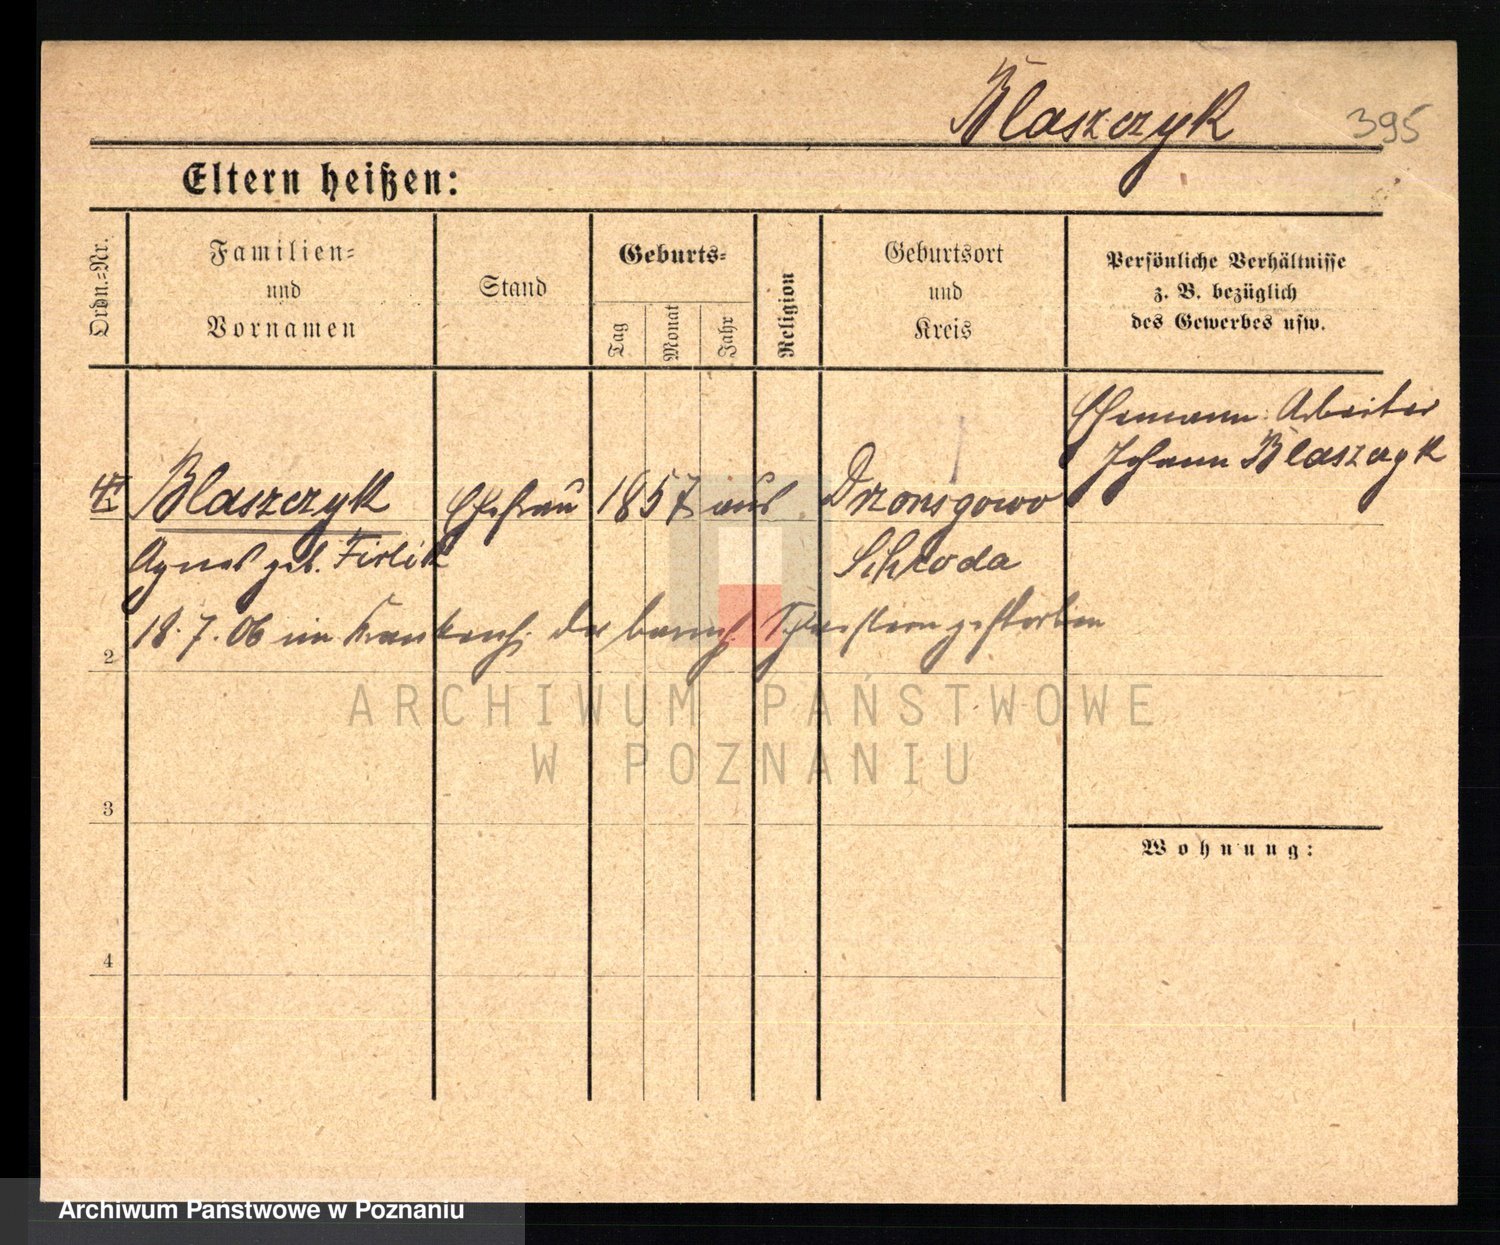 Blaszczyk 395
Eltern heißen:
Ordn.-Nr.
Familien-
und
Vornamen
Stand
Geburts-
Tag
Monat
Jahr
Religion
Geburtsort
und
Kreis
Persönliche Verhältnisse
z. B. bezüglich
des Gewerbes usw.
Ehemann: Arbeiter
Johann Blaszczyk
Blaszczyk Ehefrau 1857 aus Dzonsgowo
Agnes geb. Firlik Schroda
18.7.06 im Krankenh. der barmh. Schwestern gestorben
2
3
4
Wohnung:
ARCHIWUM PAŃSTWOWE
W POZNANIU
Archiwum Państwowe w Poznaniu